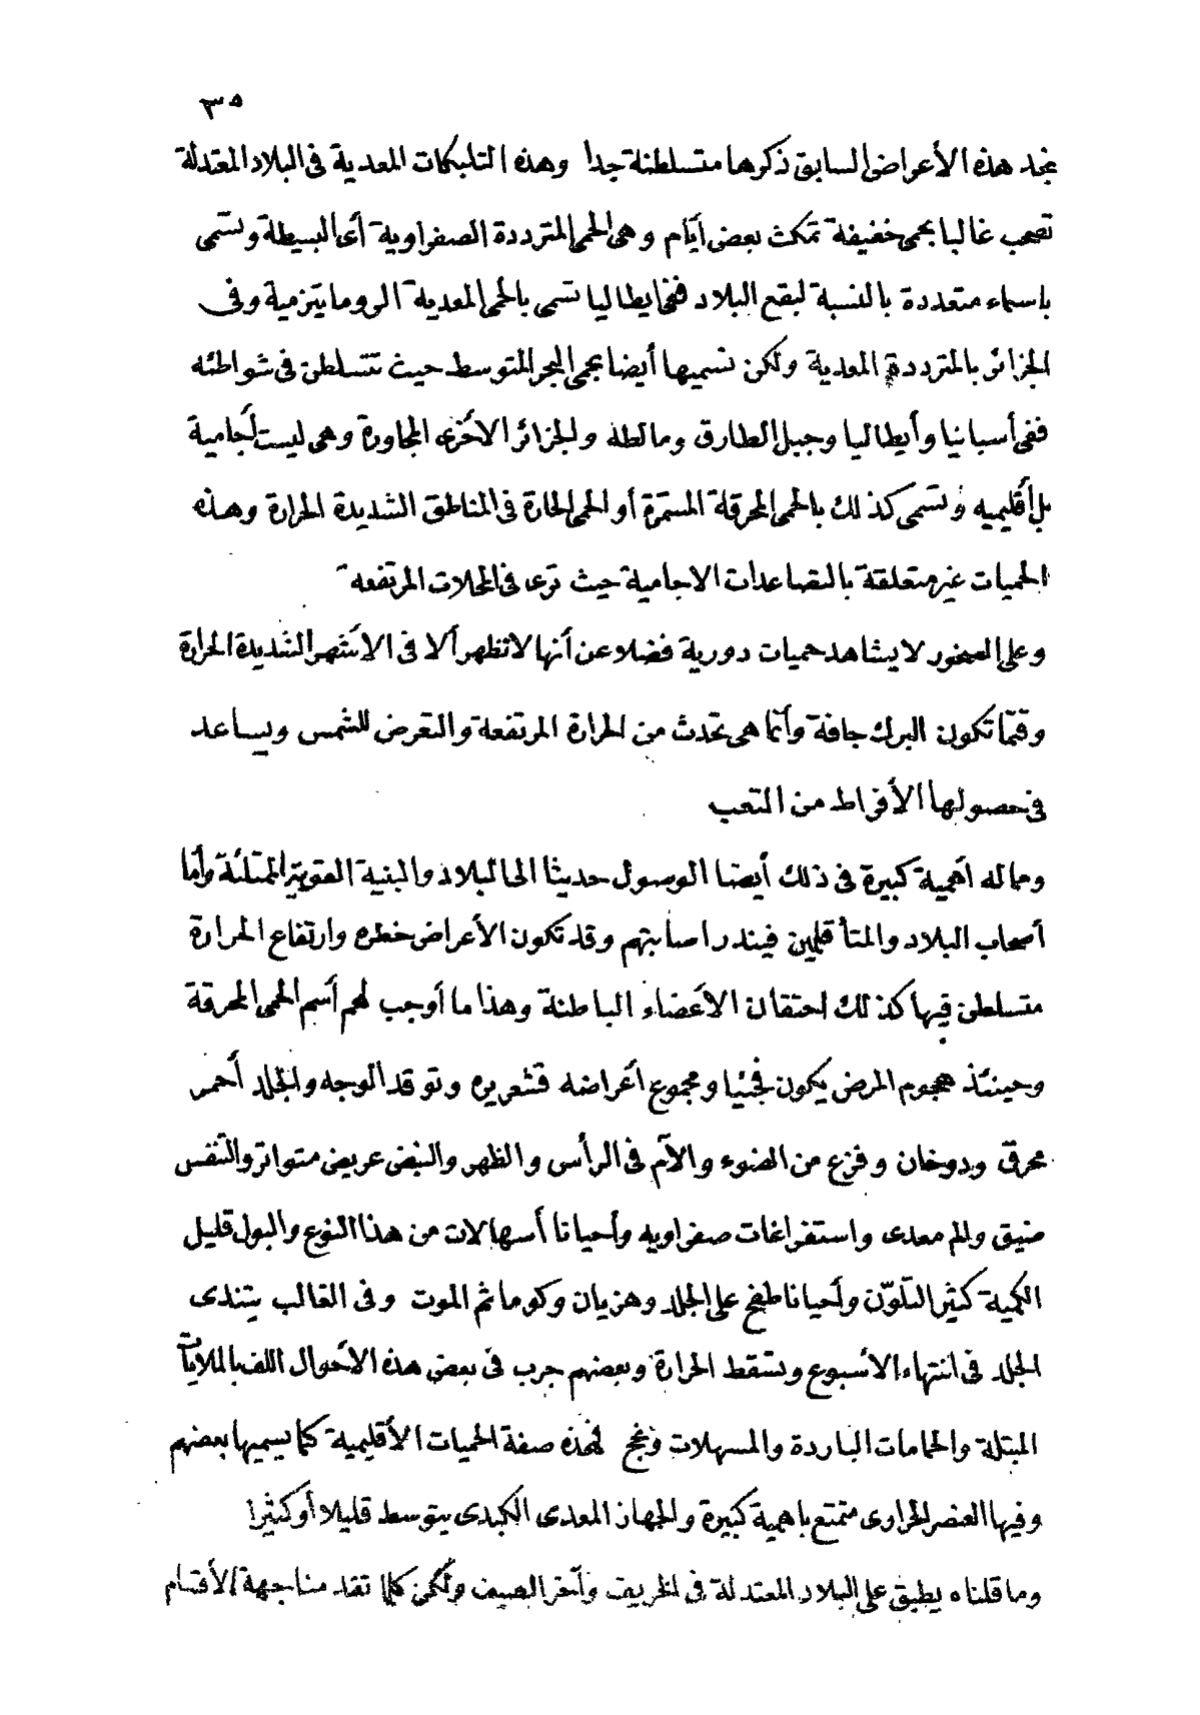 ٣٥
نجد هذه الأعراض السابق ذكرها متسلطنة جدا وهذه التلبكات المعدية فى البلاد المعتدلة
تصحب غالبا بحمى خفيفة تمكث بعض أيّام وهى الحمى المترددة الصفراوية أى البسيطة وتسمى
باسماء متعددة بالنسبة لبقع البلاد ففى ايطاليا تسمى بالحمى المعدية الروماتيزمية وفى
الجزائر بالمترددة المعدية ولكن نسميها أيضا بحمى البحر المتوسط حيث تتسلطن فى شواطئه
ففى أسبانيا وأيطاليا وجبل الطارق ومالطه والجزائر الأخرى المجاورة وهى ليست أجامية
بل أقليميه وتسمى كذلك بالحمى المحرقة المستمرة أو الحمى الحارة فى المناطق الشديدة الحرارة وهذه
الحميات غير متعلقة بالتصاعدات الاجامية حيث ترى فى المحلات المرتفعه
وعلى الصخور لا يشاهد حميات دورية فضلا عن أنها لا تظهر ألا فى الأشهر الشديدة الحرارة
وقتما تكون البرك جافة وأنما هى تحدث من الحرارة المرتفعة والتعرض للشمس ويساعد
فى حصولها الأفراط من التعب
ومما له أهمية كبيرة فى ذلك أيضا الوصول حديثا الى البلاد والبنية القوية الممتلئة وأما
أصحاب البلاد والمتأقلمين فيندر اصابتهم وقد تكون الأعراض خطره وارتفاع الحرارة
متسلطن فيها كذلك احتقان الأعضاء الباطنة وهذا ما أوجب لهم أسم الحمى المحرقة
وحينئذ هجوم المرض يكون فجئيا ومجموع أعراضه قشعريره وتوقد الوجه والجلد أحمر
محرق ودوخان وفزع من الضوء والآم فى الرأس والظهر والنبض عريض متواتر والتنفس
ضيق والم معدى واستفراغات صفراويه وأحيانا أسهالات من هذا النوع والبول قليل
الكمية كثير التلوّن وأحيانا طفح على الجلد وهزيان وكوما ثم الموت وفى الغالب يتندى
الجلد فى انتهاء الأسبوع وتسقط الحرارة وبعضهم جرب فى بعض هذه الأحوال اللف بالملايات
المبتلة والحمامات الباردة والمسهلات ونجح فهذه صفة الحميات الأقليمية كما يسميها بعضهم
وفيها العنصر الحراوى متمتع باهمية كبيرة والجهاز المعدى الكبدى يتوسط قليلا أو كثيرا
وما قلناه يطبق على البلاد المعتدلة فى الخريف وآخر الصيف ولكن كلما تقدمنا جهة الأقسام